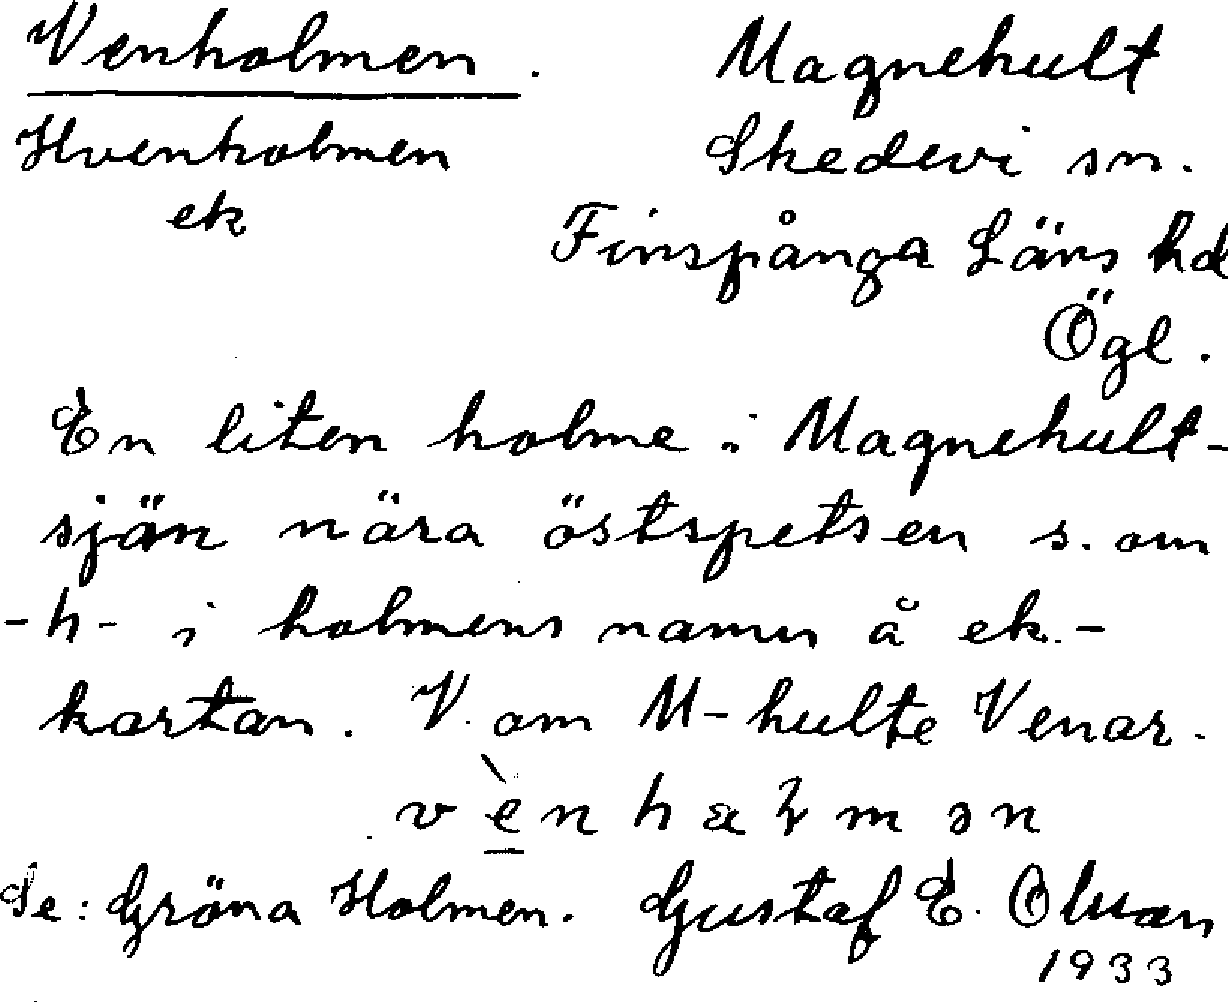 Venholmen. Magnehult
Hvenholmen Skedevi sn.
ek Finspånga Läns hd
Ögl.
En liten holme i Magnehult-
sjön nära östspetsen s. om
-h- i holmens namn å ek.-
kartan. V. om M-hulte Venar.
vènhaɫmən
Se: Gröna Holmen. Gustaf E. Olsson
1933